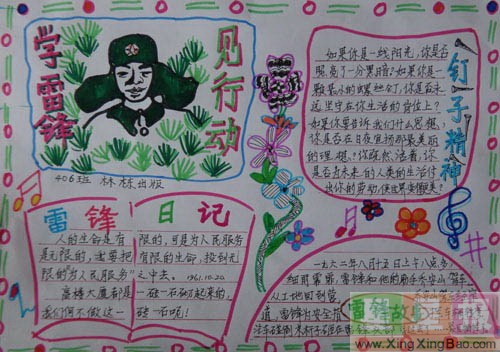 学雷锋
见行动
406班 林栋出版
钉子精神
如果你是一线阳光,你是否
照亮了一分黑暗?如果你是一
颗最小的螺丝钉,你是否永
远坚守在你生活的岗位上?
如果你要告诉我们什么思想,
你是否在日夜宣扬那最美丽
的理想?你既然活着,你
是否为未来的人类的生活付
出你的劳动,使世界
雷锋日记
人的生命是有限的,可是为人民服务
是无限的,我要把有限的生命,投到无
限的"为人民服务"之中去。 1961.10.20
高楼大厦都是一砖一石砌起来的,
我们何不做这一砖一石呢!
雷锋故事
一九六二年八月十五日上午八点多,
细雨霏霏,雷锋和他的助手乔安山驾车
从工地回到营
道,雷锋
www.XingXingBao.com